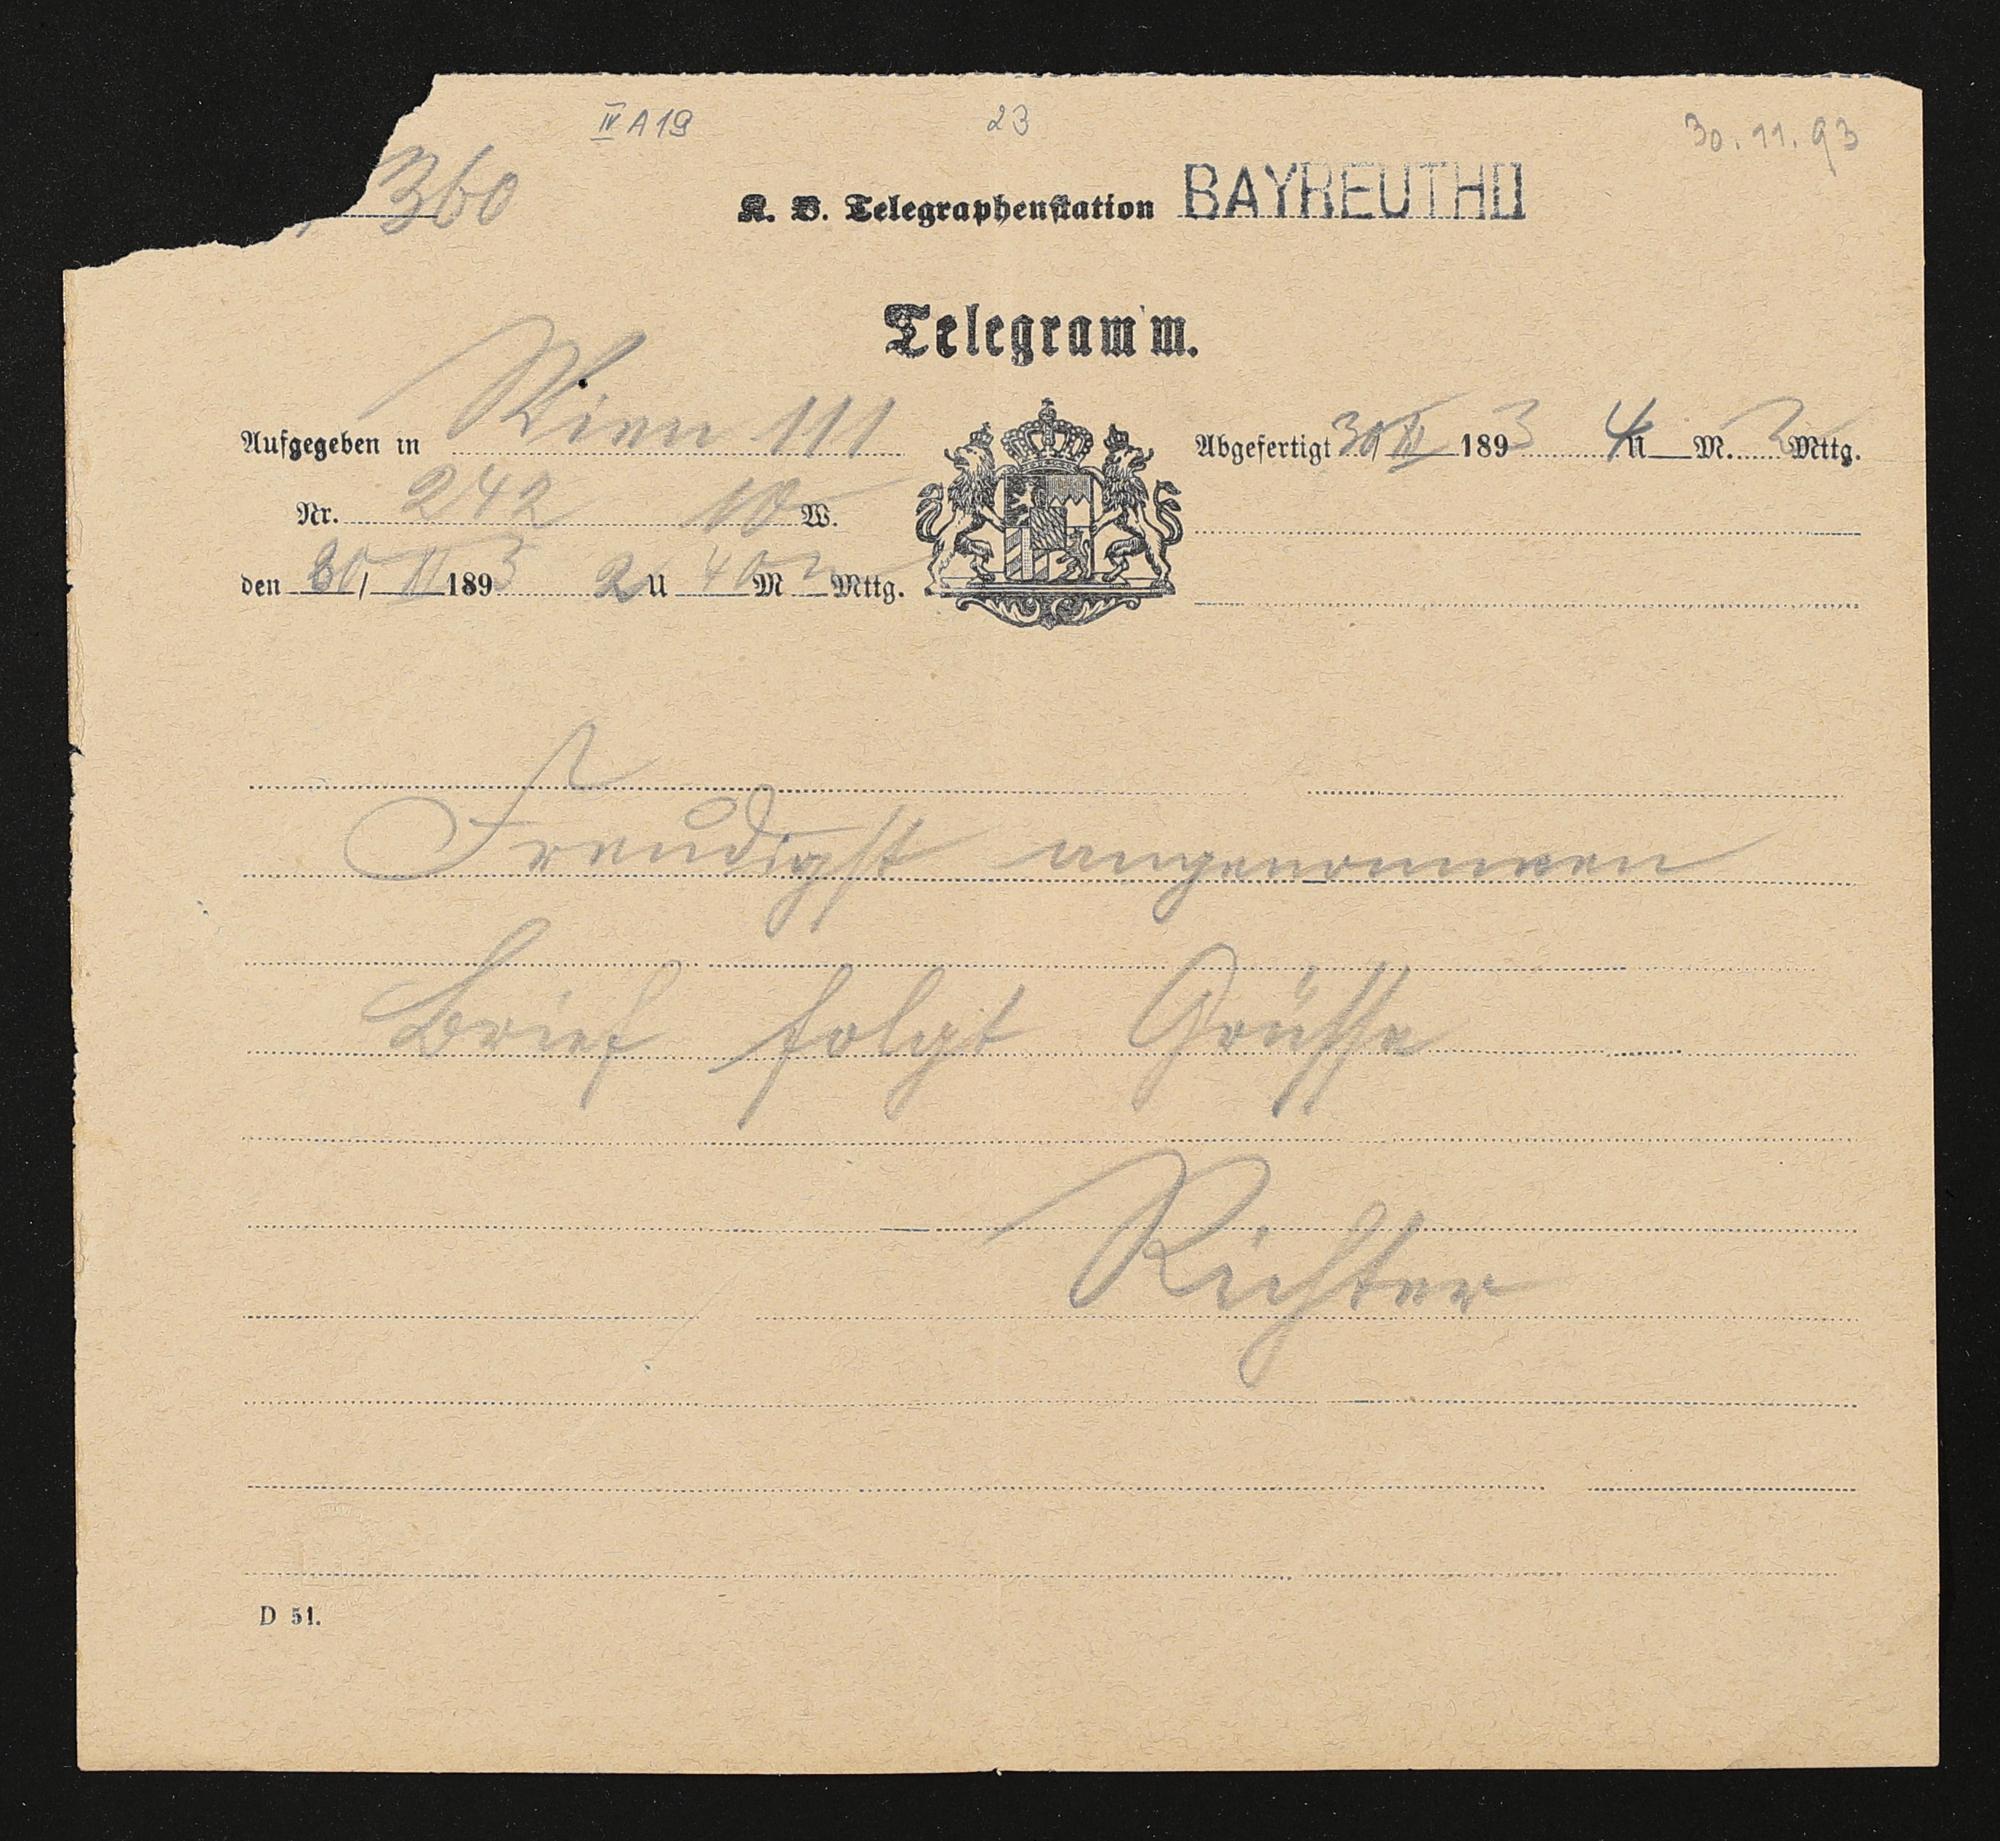 IV A 19 23 30.11.93
360
K. B. Telegraphenstation BAYREUTH II
Telegramm.
Aufgegeben in Wien 111 Abgefertigt 30/XI 1893 4 U M. Mttg.
Nr. 242 10 W.
den 30/XI 1893 2 U 40 M Mttg.
Freudigst angenommen
Brief folgt Grüsse
Richter
D 51.